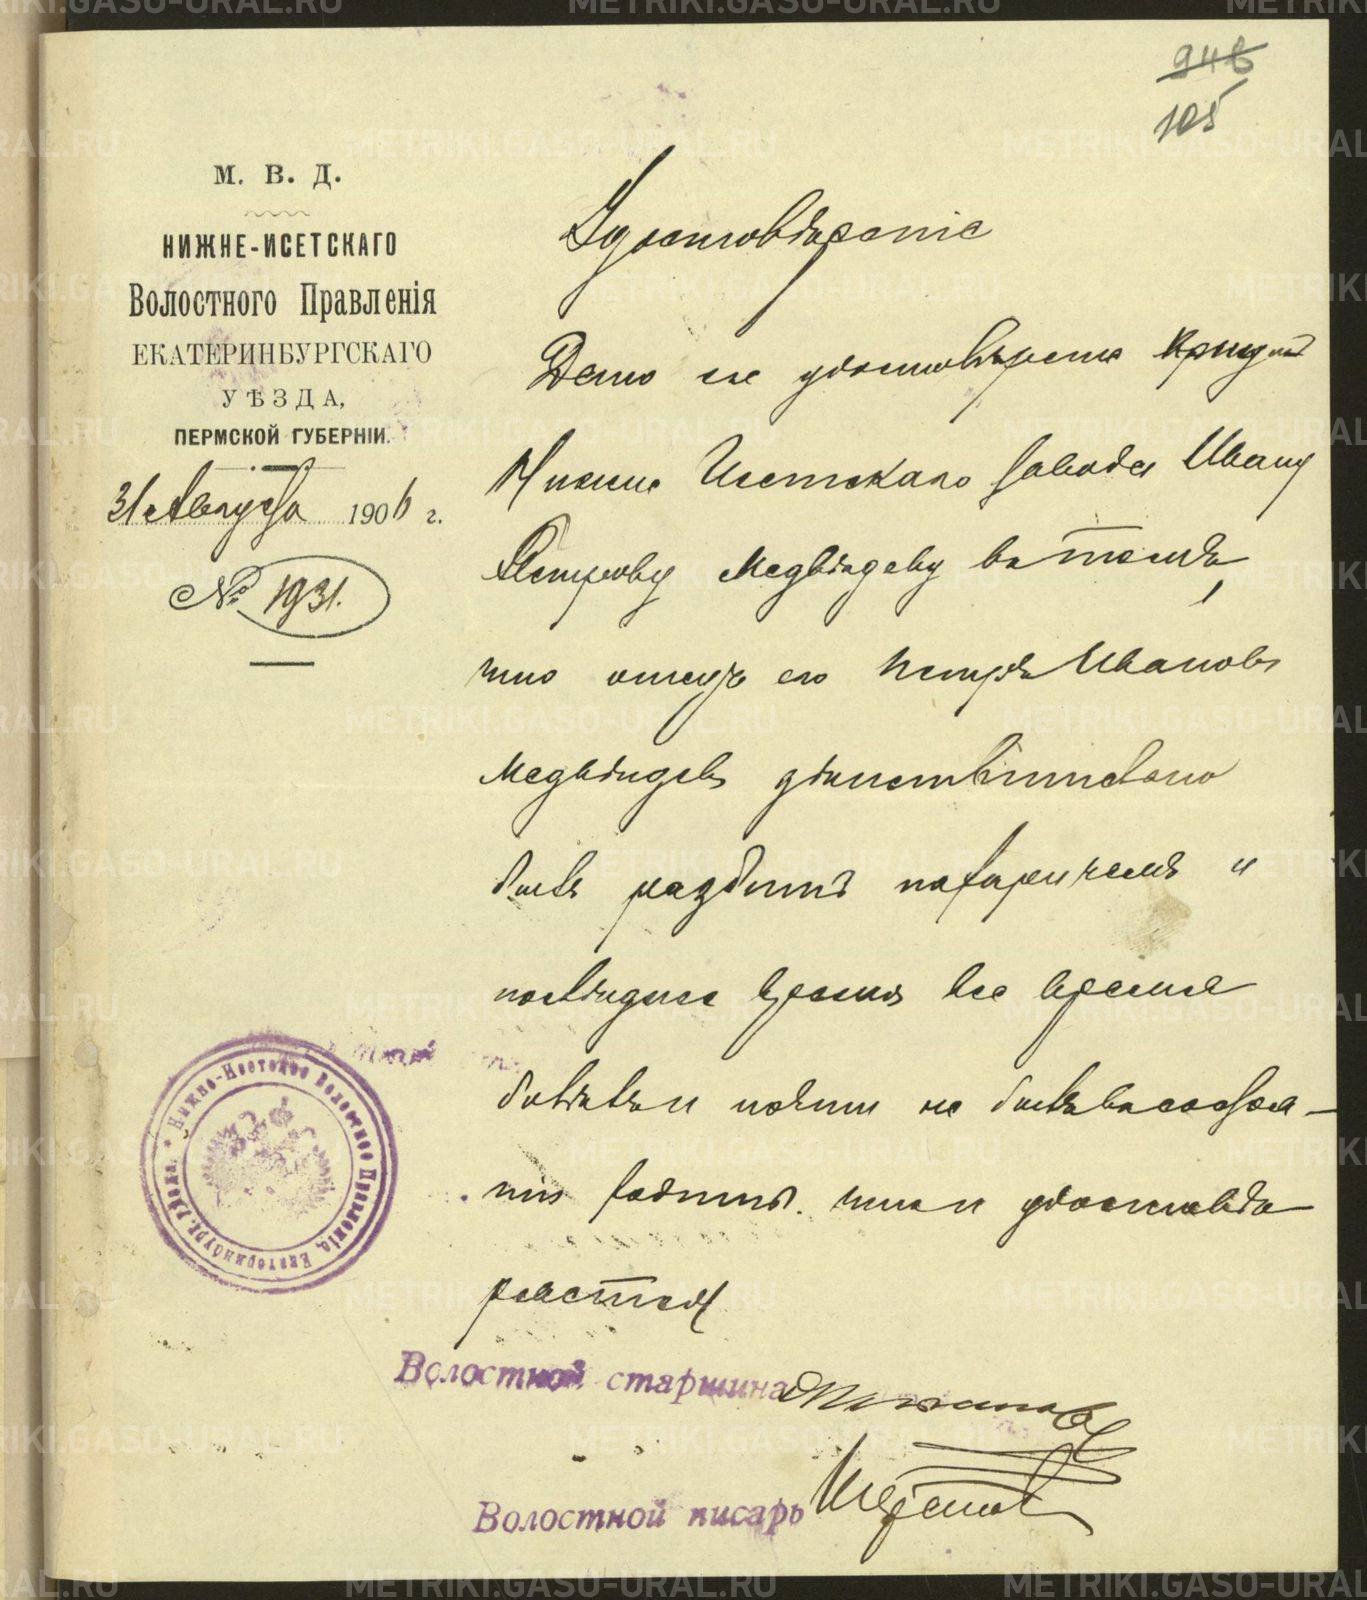 948
105
М. В. Д.
НИЖНЕ-ИСЕТСКАГО
Волостного Правленія
ЕКАТЕРИНБУРГСКАГО
УѢЗДА,
ПЕРМСКОЙ ГУБЕРНІИ.
31 Августа 1906 г.
№ 1931.
Удостовѣреніе
Дано сіе удостовѣреніе
Нижне Исетскаго завода Ивану
Петрову Медвѣдеву въ томъ,
что отецъ его Петръ Ивановъ
Медвѣдевъ дѣйствительно
былъ разбитъ параличемъ и
послѣднее время все время
болѣлъ и почти не былъ въ сознаніи
что и удостовѣ-
ряется
Нижне-Исетское Волостное Правленіе, Екатеринбург. уѣзда.
Волостной старшина
Волостной писарь
METRIKI.GASO-URAL.RU